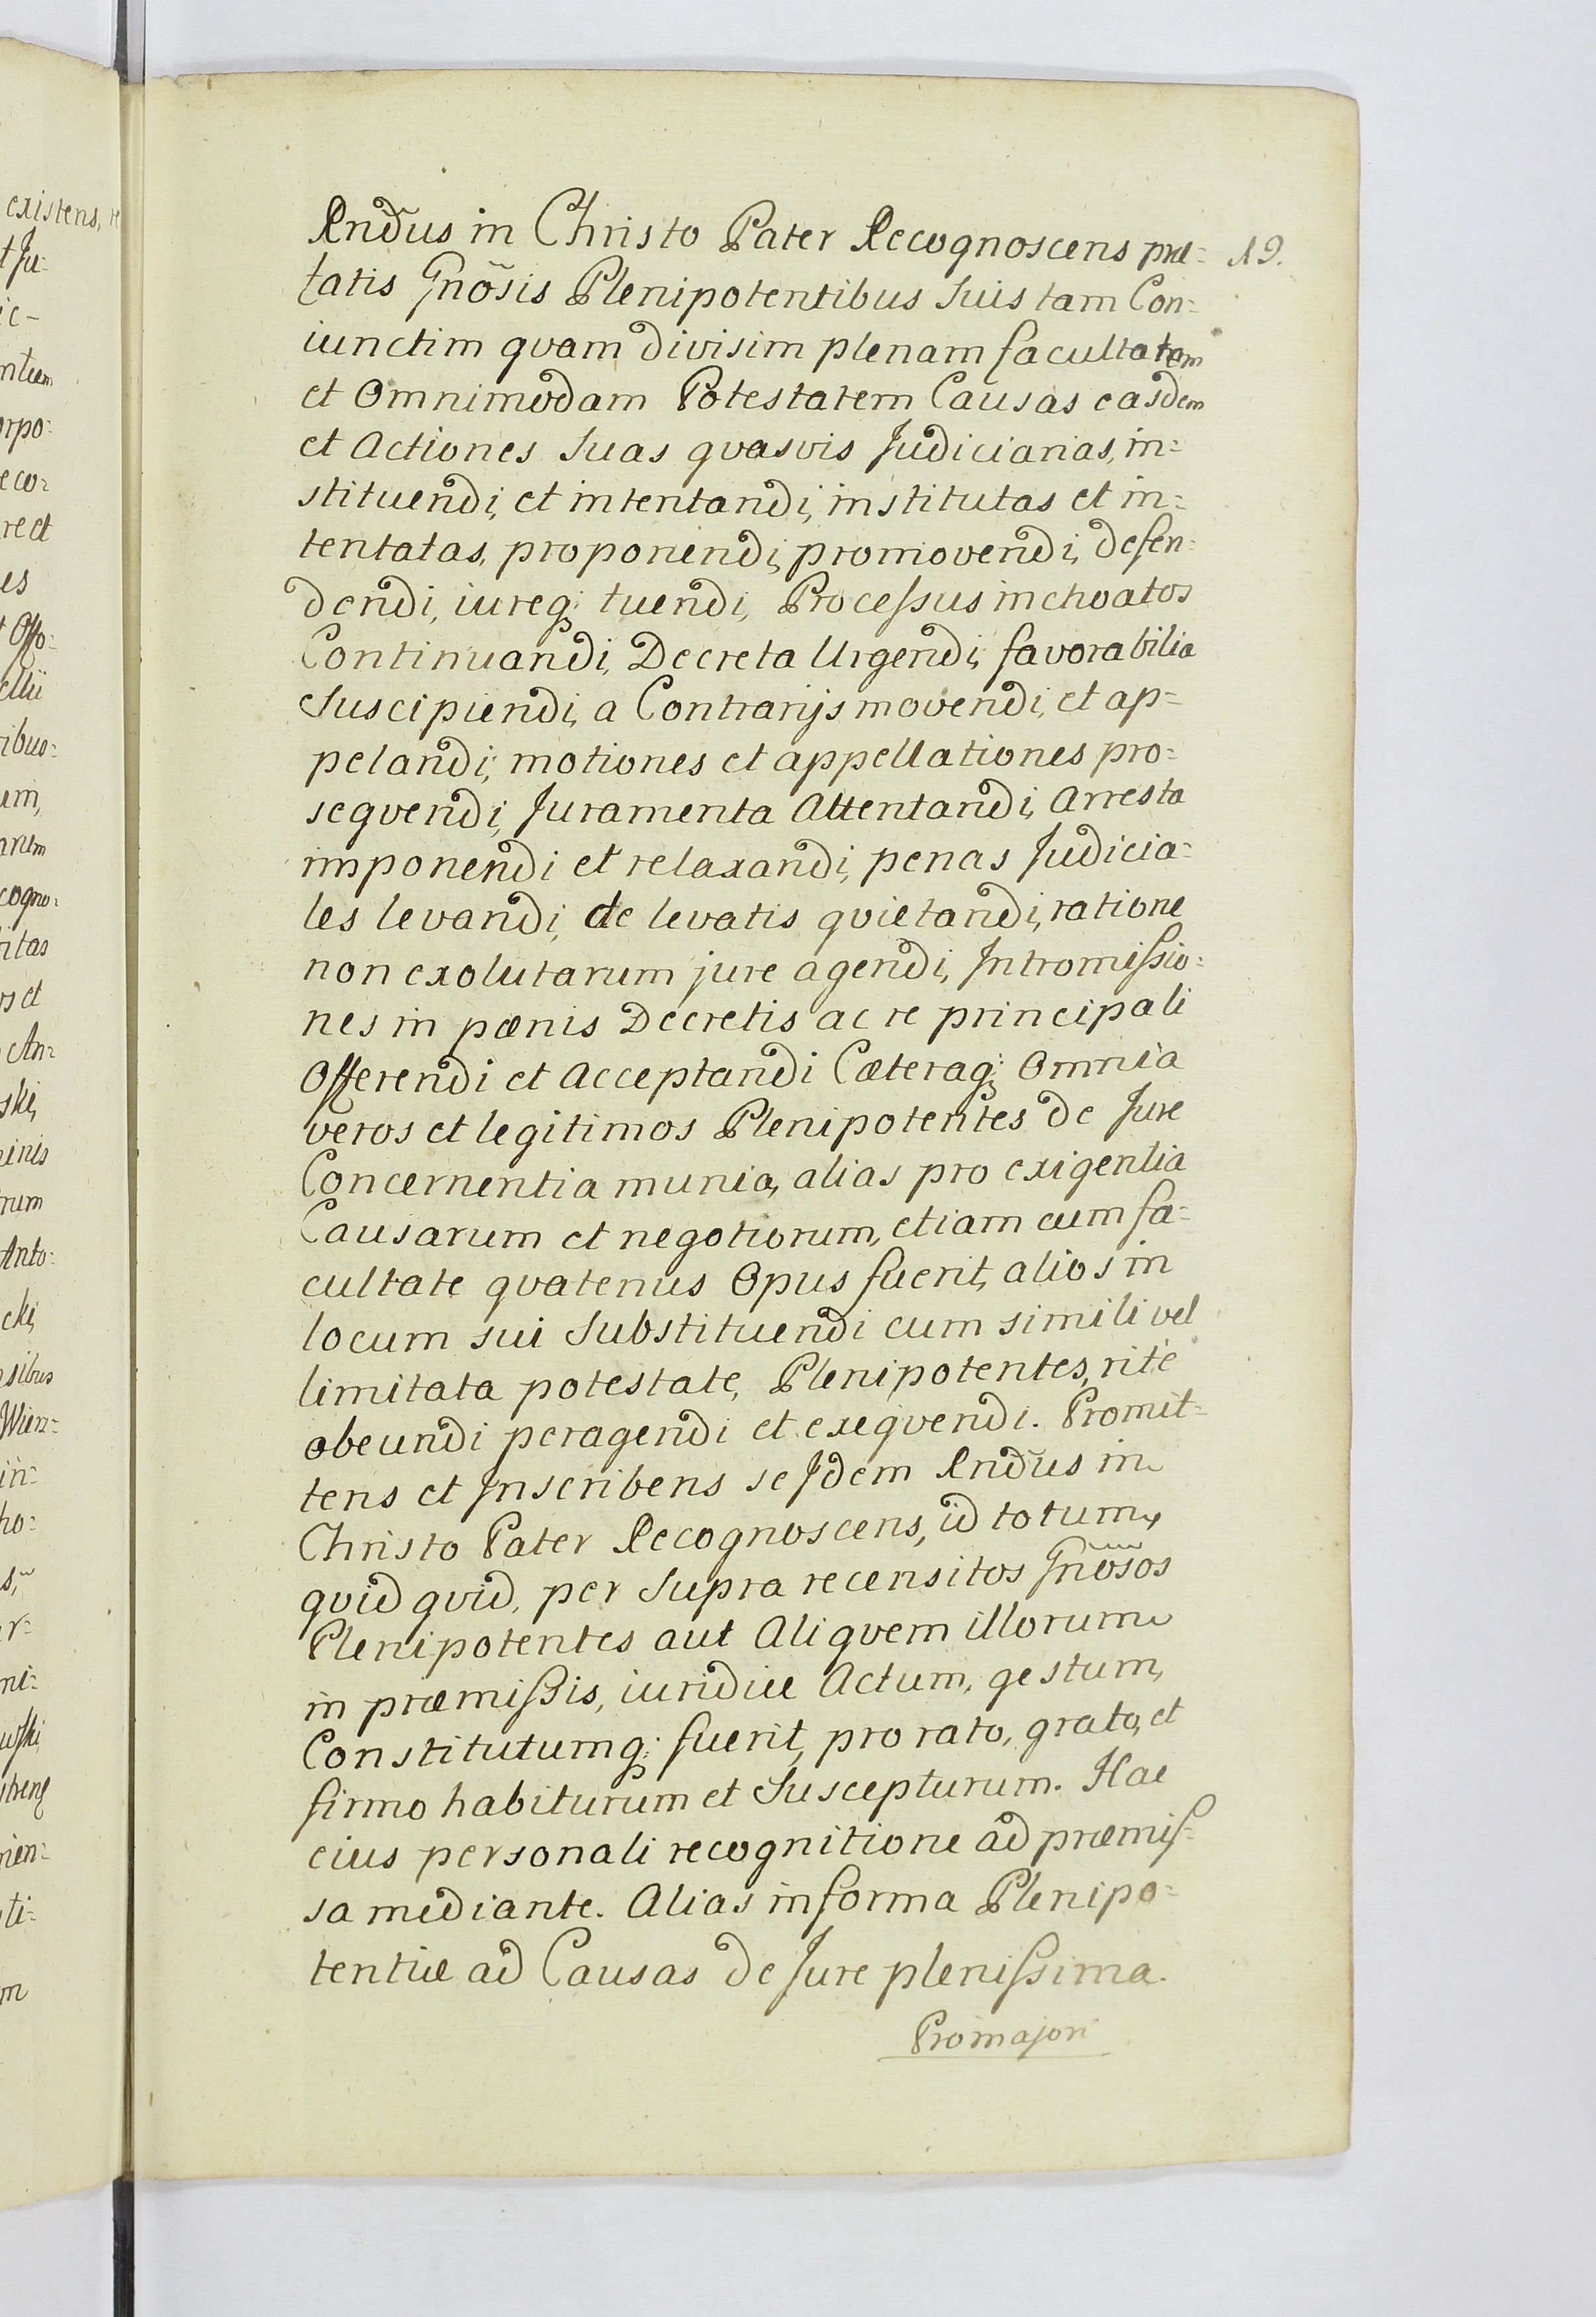 Rnd̃us in Christo Pater Recognoscens præ= 19.
tatis Gnõsis Plenipotentibus Suis tam Con=
iunctim qvam divisim plenam facultatem
et Omnimodam Potestatem Causas easdem
et Actiones Suas qvasvis Judiciarias, in=
stituendi, et intentandi, institutas et in=
tentatas, proponendi, promovendi, defen=
dendi, iureq; tuendi, Processus inchoatos
Continuandi, Decreta Urgendi, favorabilia
Suscipiendi, a Contrarijs movendi, et ap=
pelandi, motiones et appellationes pro=
seqvendi, Juramenta Attentandi, Arresta
imponendi et relaxandi, penas Judicia=
les levandi, de levatis qvietandi, ratione
non exolutarum jure agendi, Intromissio=
nes in pœnis Decretis ac re principali
Offerendi et Acceptandi Cæteraq; Omnia
veros et legitimos Plenipotentes de Jure
Concernentia munia, alias pro exigentia
Causarum et negotiorum, etiam cum fa=
cultate qvatenus Opus fuerit, alios in
locum sui Substituendi cum simili vel
limitata potestate, Plenipotentes, rite
obeundi peragendi et exeqvendi. Promit=
tens et Inscribens se Jdem Rnd̃us in
Christo Pater Recognoscens, id totum,
qvid qvid, per Supra recensitos Gnõsos
Plenipotentes aut Aliqvem illorum
in præmissis, iuridice Actum, gestum,
Constitutumq; fuerit, pro rato, grato, et
firmo habiturum et Suscepturum. Hac
eius personali recognitione ad præmis=
sa mediante. Alias in forma Plenipo=
tentiæ ad Causas de Jure plenissima.
Pro majori
existens,
t Ju=
ic-
ntium
orpo=
eco=
re et
es
t Offo=
ellii
ribus=
um,
arum
cogno=
ritas
os et
An=
ski,
inis
rum
Anto=
cki,
sibus
Wierz=
in=
ho=
s,
r=
ni=
wski
rien=
ti=
m